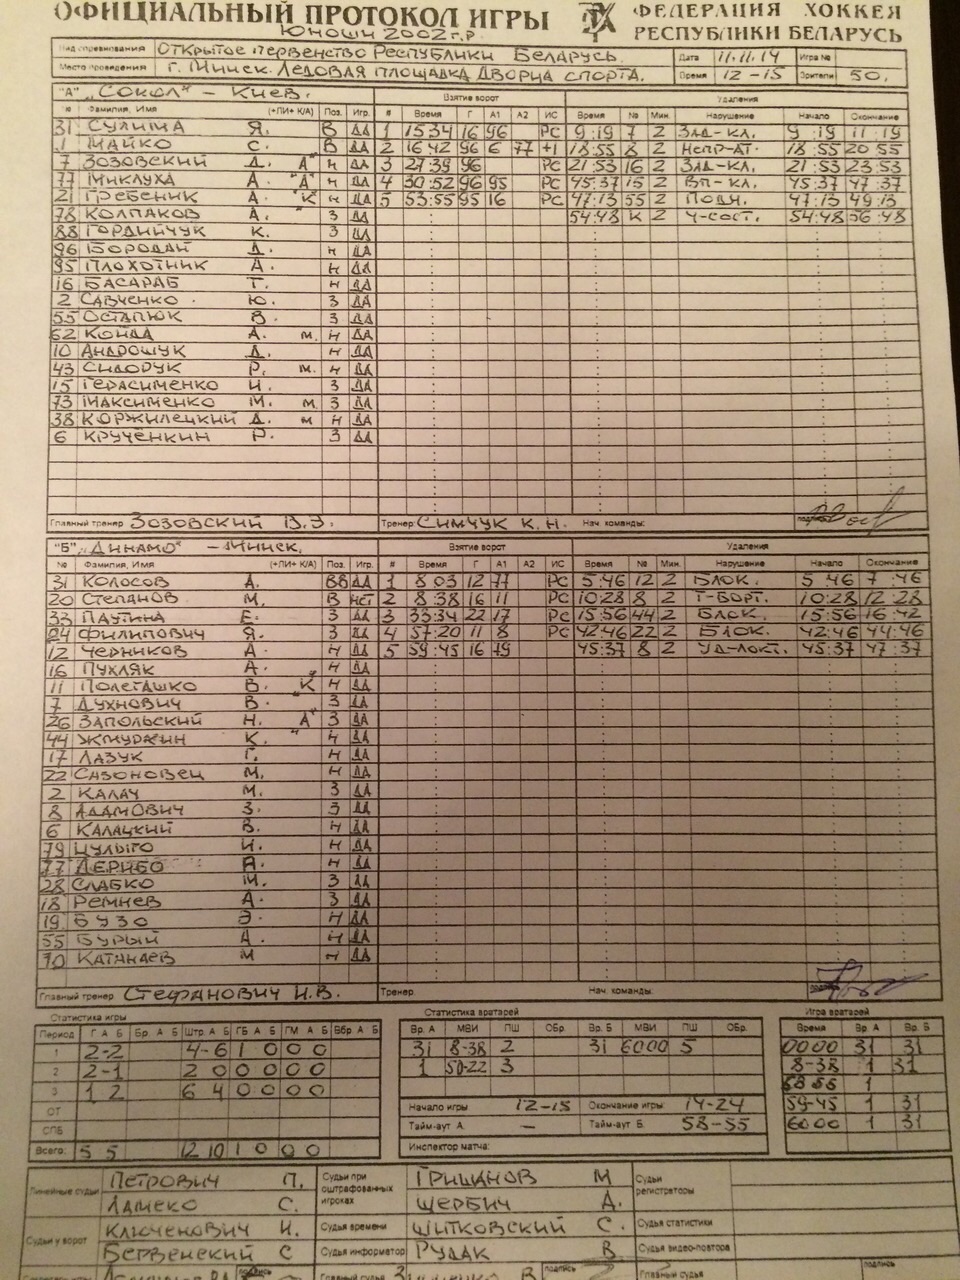 ОФИЦИАЛЬНЫЙ ПРОТОКОЛ ИГРЫ ФЕДЕРАЦИЯ ХОККЕЯ
Юноши 2002 г.р. РЕСПУБЛИКИ БЕЛАРУСЬ
Вид соревнования Открытое первенство Республики Беларусь Дата 11.11.14 Игра №
Место проведения г. Минск. Ледовая площадка Дворца спорта. Время 12-15 Зрители 50.
"А" "Сокол" - Киев. Взятие ворот Удаления
№ Фамилия, Имя (+ПИ+ К/А) Поз. Игр. # Время Г А1 А2 ИС Время № Мин. Нарушение Начало Окончание
31 Сулима Я. В ДА 1 15 34 16 96 РС 9:19 7 2 Зад-кл. 9:19 11:19
1 Майко С. В ДА 2 16 42 96 6 77 +1 18:55 8 2 Непр-ат. 18:55 20 55
7 Зозовский Д. "А" Н ДА 3 27:39 96 РС 21:53 16 2 Зад-кл. 21:53 23:53
77 Миклуха А. "А" Н ДА 4 30:52 96 95 РС 45:37 15 2 Вп-кл. 45:37 47:37
21 Гребеник А. "К" Н ДА 5 53:55 95 16 РС 47:13 55 2 Подн. 47:13 49:13
78 Колпаков А. З ДА 54:48 К 2 Ч-сост. 54:48 56:48
88 Гордийчук К. З ДА
96 Бородай Д. Н ДА
95 Плохотник А. Н ДА
16 Басараб Т. Н ДА
2 Савченко Ю. З ДА
55 Остапюк В. З ДА
62 Койда А. м. Н ДА
10 Андрощук Д. Н ДА
43 Сидорук Р. м. Н ДА
15 Герасименко И. З ДА
73 Максименко М. м. З ДА
38 Коржилецкий Д. м Н ДА
6 Кручёнкин Р. З ДА
Главный тренер Зозовский В.Э. Тренер: Симчук К.Н. Нач. команды:
"Б" "Динамо" - Минск. Взятие ворот Удаления
№ Фамилия, Имя (+ПИ+ К/А) Поз. Игр. # Время Г А1 А2 ИС Время № Мин. Нарушение Начало Окончание
31 Колосов А. ВВ ДА 1 8 03 12 77 РС 5:46 12 2 Блок. 5 46 7:46
20 Степанов М. В НЕТ 2 8:38 16 11 РС 10:28 8 2 Т-борт. 10:28 12:28
33 Паутина Е. З ДА 3 33:34 22 17 РС 15:56 44 2 Блок. 15:56 16:42
24 Филипович Я. З ДА 4 57:20 11 8 РС 42:46 22 2 Блок. 42:46 44:46
12 Черников А. Н ДА 5 59:45 16 79 45:37 8 2 Уд-локт. 45:37 47:37
16 Пухляк А. Н ДА
11 Полеташко В. "К" Н ДА
7 Духнович В. З ДА
26 Запольский Н. "А" З ДА
44 Жмуркин К. Н ДА
17 Лазук Г. Н ДА
22 Сазоновец М. Н ДА
2 Калач М. З ДА
8 Адамович З. З ДА
6 Калацкий В. Н ДА
79 Цулыго И. Н ДА
77 Дерибо Я. Н ДА
28 Слабко М. З ДА
18 Ремнев А. З ДА
19 Бузо Э. Н ДА
55 Бурый А. Н ДА
70 Катанаев М Н ДА
Главный тренер Стефанович И.В. Тренер: Нач. команды:
Статистика игры Статистика вратарей Игра вратарей
Период Г А Б Бр А Б Штр. А Б ГБ А Б ГМ А Б Вбр. А Б Вр. А МВИ ПШ ОБр. Вр. Б МВИ ПШ ОБр. Время Вр. А Вр. Б
1 2-2 4-6 1 0 0 0 31 8-38 2 31 6000 5 00 00 31 31
2 2-1 2 0 0 0 0 0 1 50-22 3 8-38 1 31
3 1 2 6 4 0 0 0 0 58 55 1
ОТ Начало игры 12-15 Окончание игры 14-24 59-45 1 31
СПБ Тайм-аут А. — Тайм-аут Б. 58-55 6000 1 31
Всего: 5 5 12 10 1 0 0 0 Инспектор матча:
Линейные судьи Петрович П. Судьи при оштрафованных игроках Гришанов М Судьи регистраторы
Ламеко С. Щербич А.
Судьи у ворот Ключенович И. Судья времени Шитковский С. Судья статистики
Бервенский С Судья информатор Рудак В Судья видео-повтора
подпись Главный судья подпись Главный судья подпись